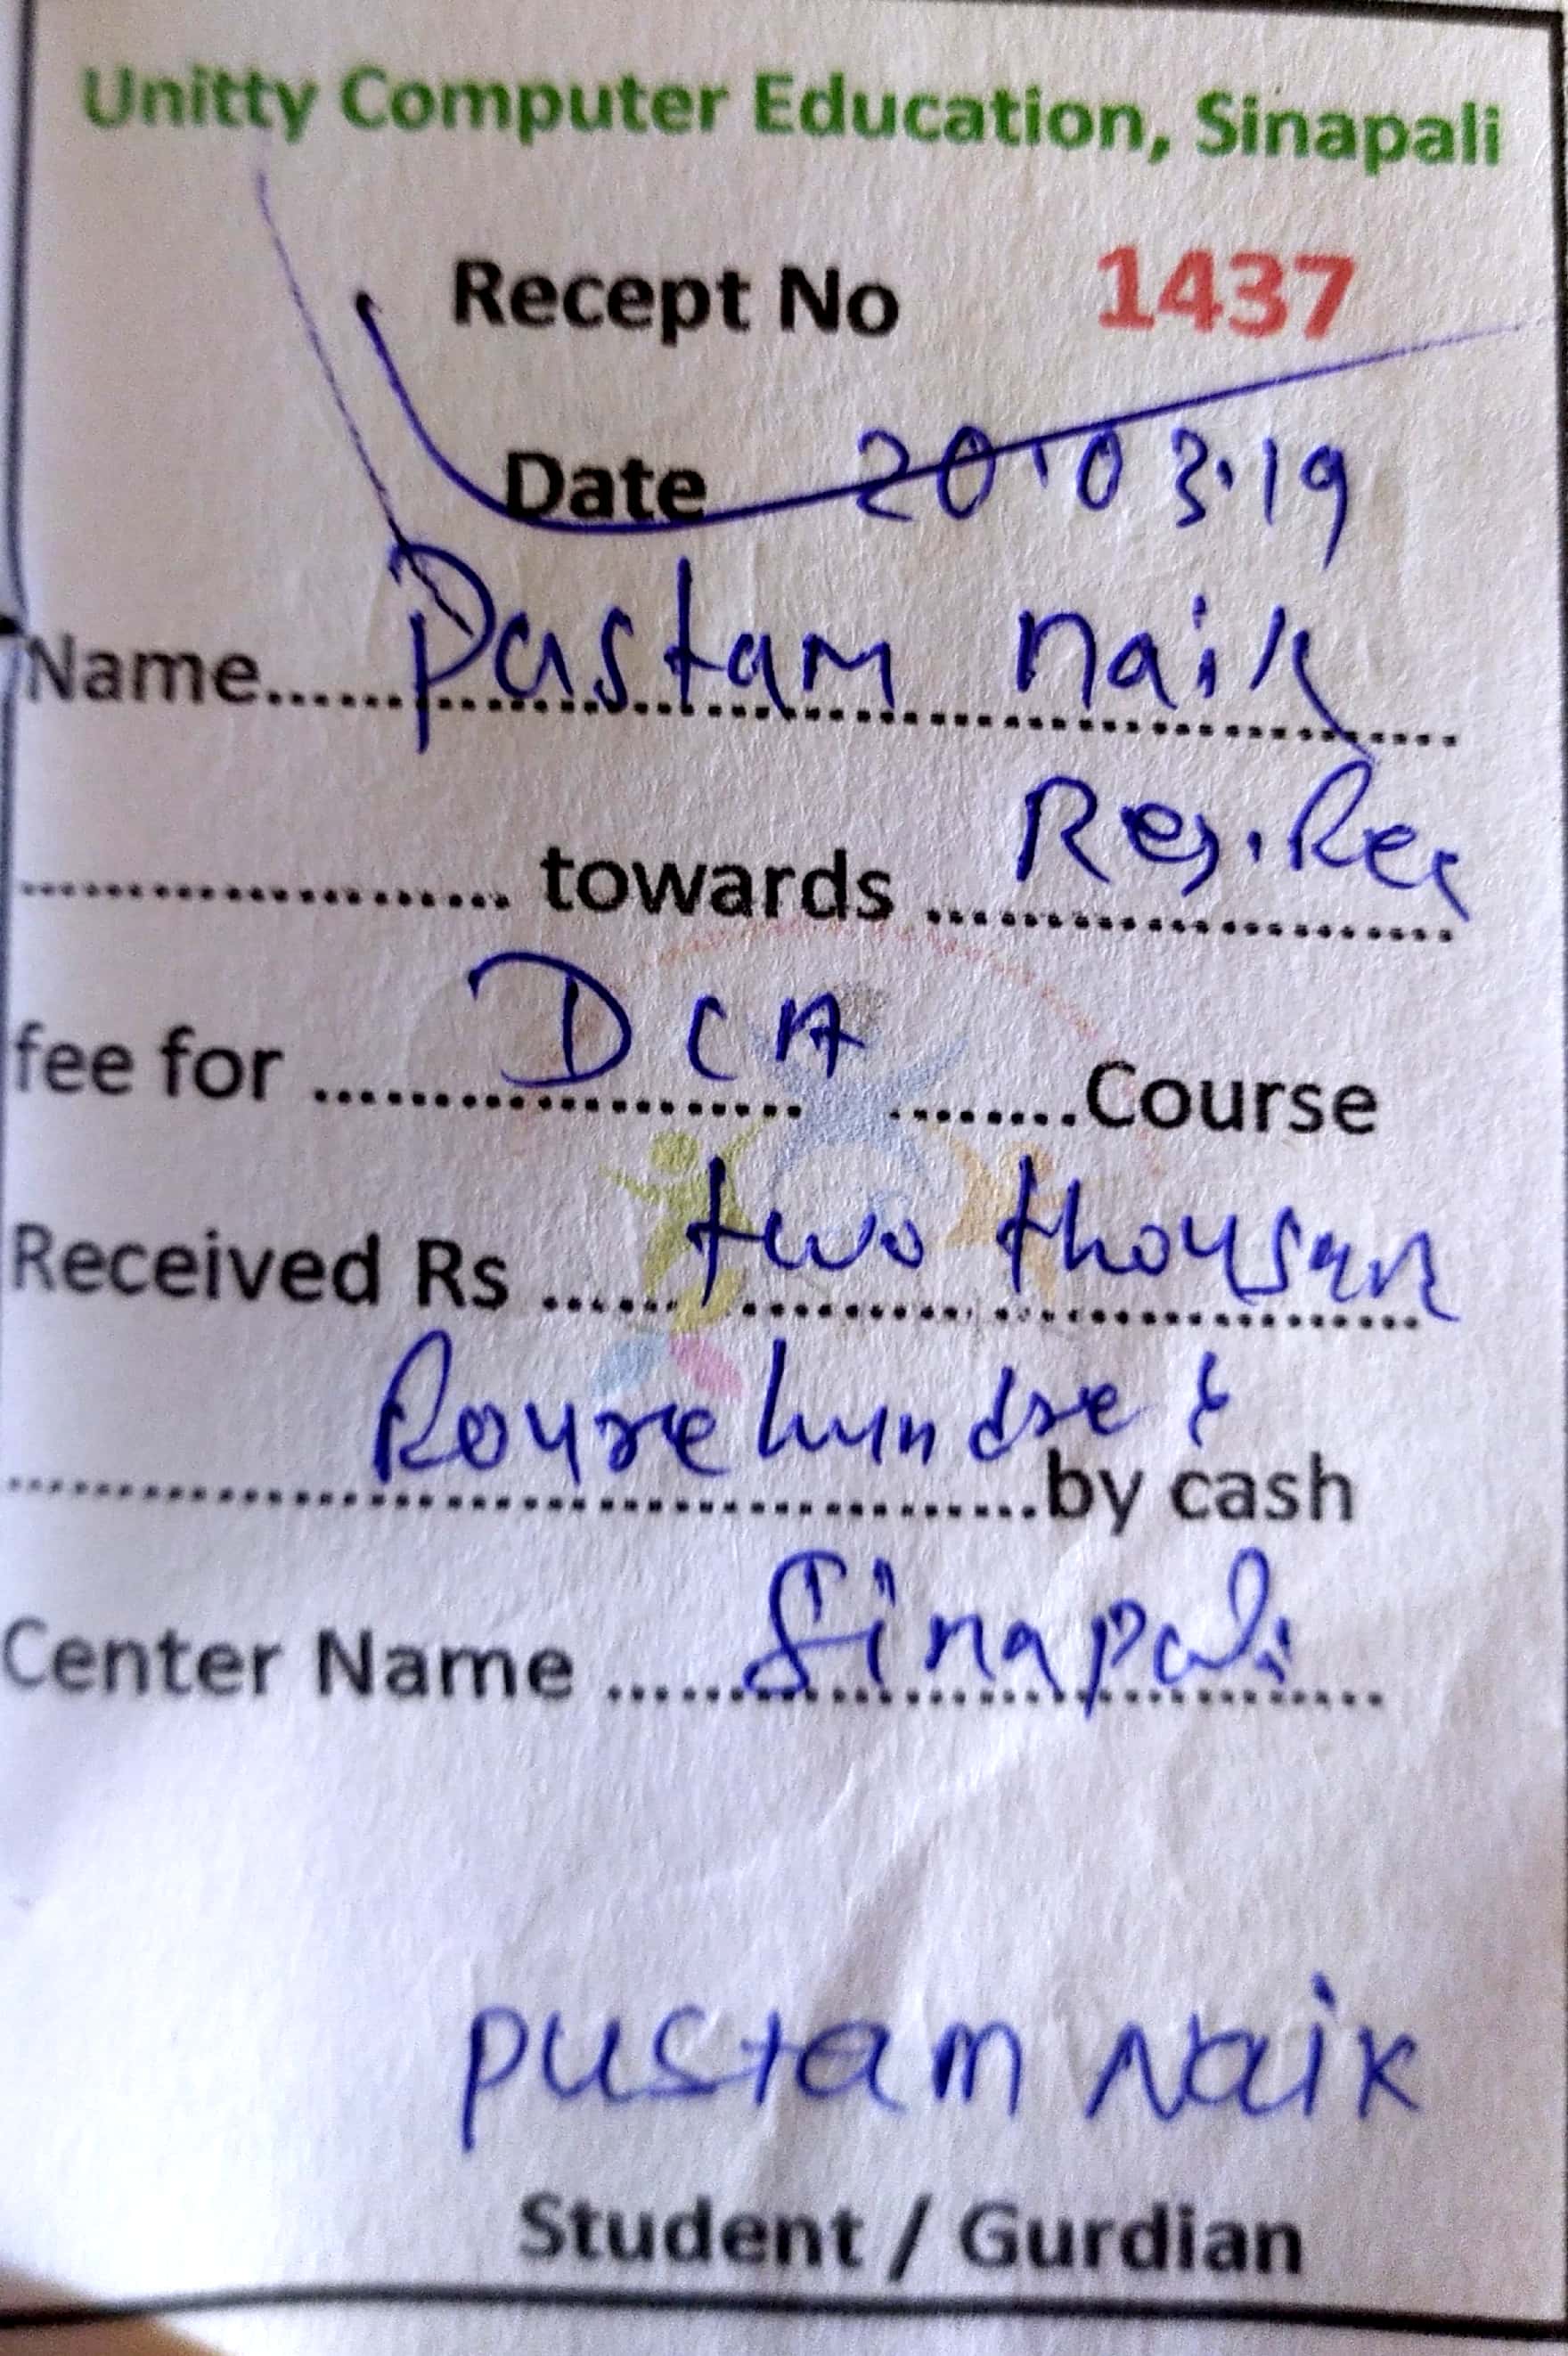 Unitty Computer Education, Sinapali
Recept No 1437
Date 20.03.19
Name...... Pustam naik
.................... towards ....................
fee for .................... DCA ........Course
Received Rs ...... two thousan
hundre by cash
Center Name ...... Sinapali
pustam Naik
Student / Gurdian